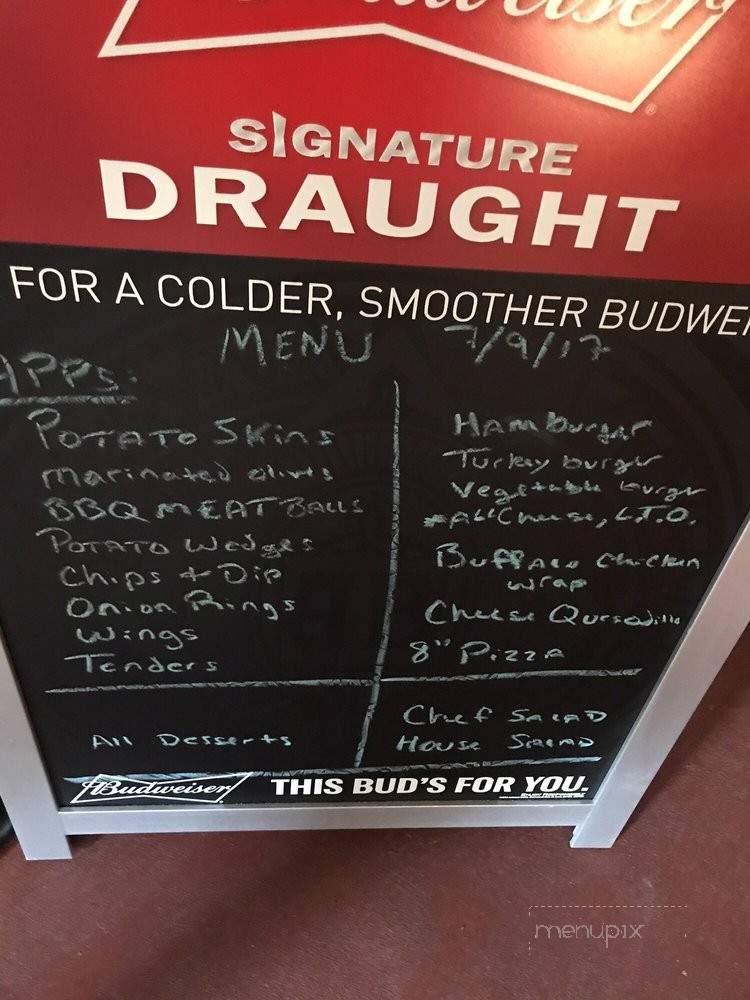 Budweiser
SIGNATURE
DRAUGHT
FOR A COLDER, SMOOTHER BUDWEI
MENU 7/9/17
APPS:
POTATO Skins
marinated olives
BBQ MEAT BALLS
POTATO Wedges
Chips + Dip
Onion Rings
Wings
Tenders
All Desserts
Hamburger
Turkey burger
Vegetable burger
*All Cheese, L.T.O.
Buffalo chicken
wrap
Cheese Quesadilla
8" Pizza
Chef SALAD
House SALAD
Budweiser THIS BUD'S FOR YOU.
menupix